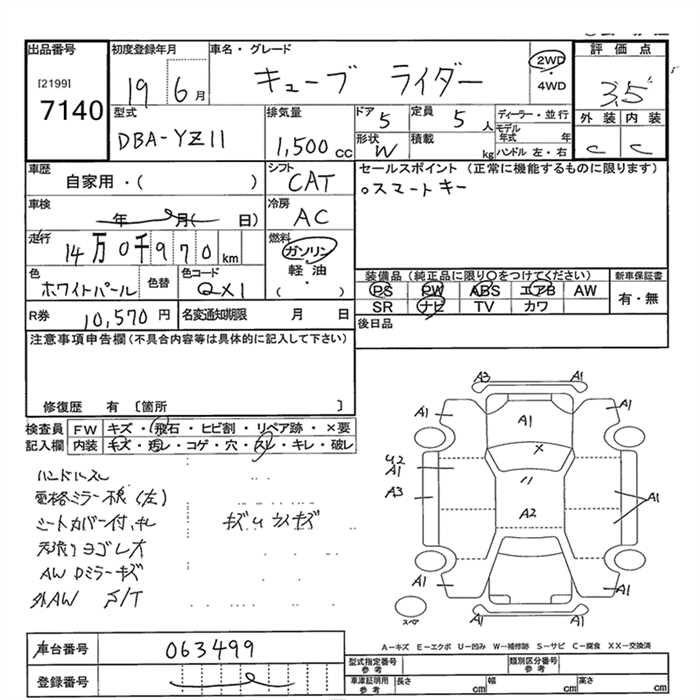 出品番号 初度登録年月 車名・グレード 評価点
[2199] 7140 19 6月 キューブ ライダー 2WD・4WD 3.5
外装 内装
C C
型式 DBA-YZ11 排気量 1,500cc ドア 5 定員 5人 ディーラー・並行
形状 W 積載 kg モデル年式 年
ハンドル 左・右
車歴 自家用・( ) シフト CAT セールスポイント (正常に機能するものに限ります)
車検 年 月( 日) 冷房 AC 。スマートキー
走行 14万0千970km 燃料 ガソリン・軽油・( )
色 ホワイトパール 色替 色コード QX1
装備品 (純正品に限り○をつけてください) 新車保証書
PS PW ABS エアB AW 有・無
SR ナビ TV カワ
R券 10,570円 名変通知期限 月 日 後日品
注意事項申告欄(不具合内容等は具体的に記入して下さい)
修復歴 有 〔箇所 〕
検査員記入欄 FW キズ・飛石・ヒビ割・リペア跡・×要
内装 キズ・汚レ・コゲ・穴・スレ・キレ・破レ
ハンドルスレ
電格ミラー不良(左)
シートカバー付、キレ
天張りヨゴレ大
AW Dミラーキズ
外AW S/T
A3 A1
A1 A1 A1
U2
A1
A3 A2 A1
A1 A1
A1
スペア
A-キズ E-エクボ U-凹み W-補修跡 S-サビ C-腐食 XX-交換済
車台番号 063499
登録番号
型式指定番号 参考 類別区分番号 参考
車津証明用 参考 長さ cm 幅 cm 高さ cm